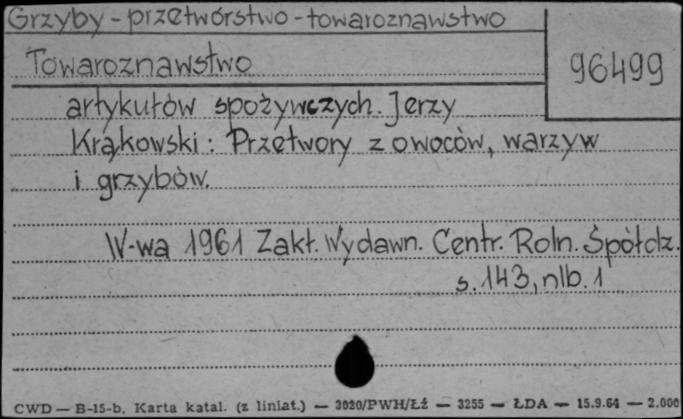 Grzyby - przetwórstwo - towaroznawstwo
Towaroznawstwo
96499
artykułów spożywczych. Jerzy
Krąkowski: Przetwory z owoców, warzyw
i grzybów.
W-wa 1961 Zakł. Wydawn. Centr. Roln. Spółdz.
s. 143, nlb. 1
CWD — B-15-b, Karta katal. (z liniat.) — 3020/PWH/Łż — 3255 — ŁDA — 15.9.64 — 2.000